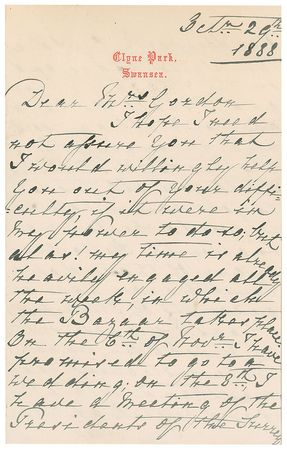 Octr 29th
1888
Clyne Park,
Swansea.
Dear Mrs Gordon
I hope I need
not assure you that
I would willingly help
you out of your diffi-
=culty, if it were in
my power to do so, but
alas! my time is already
heavily engaged all
the week, in which
the Bazaar takes place
On the 6th of Novr I have
promised to go to a
wedding: on the 8th I
have a Meeting of the
Presidents of the Surrey